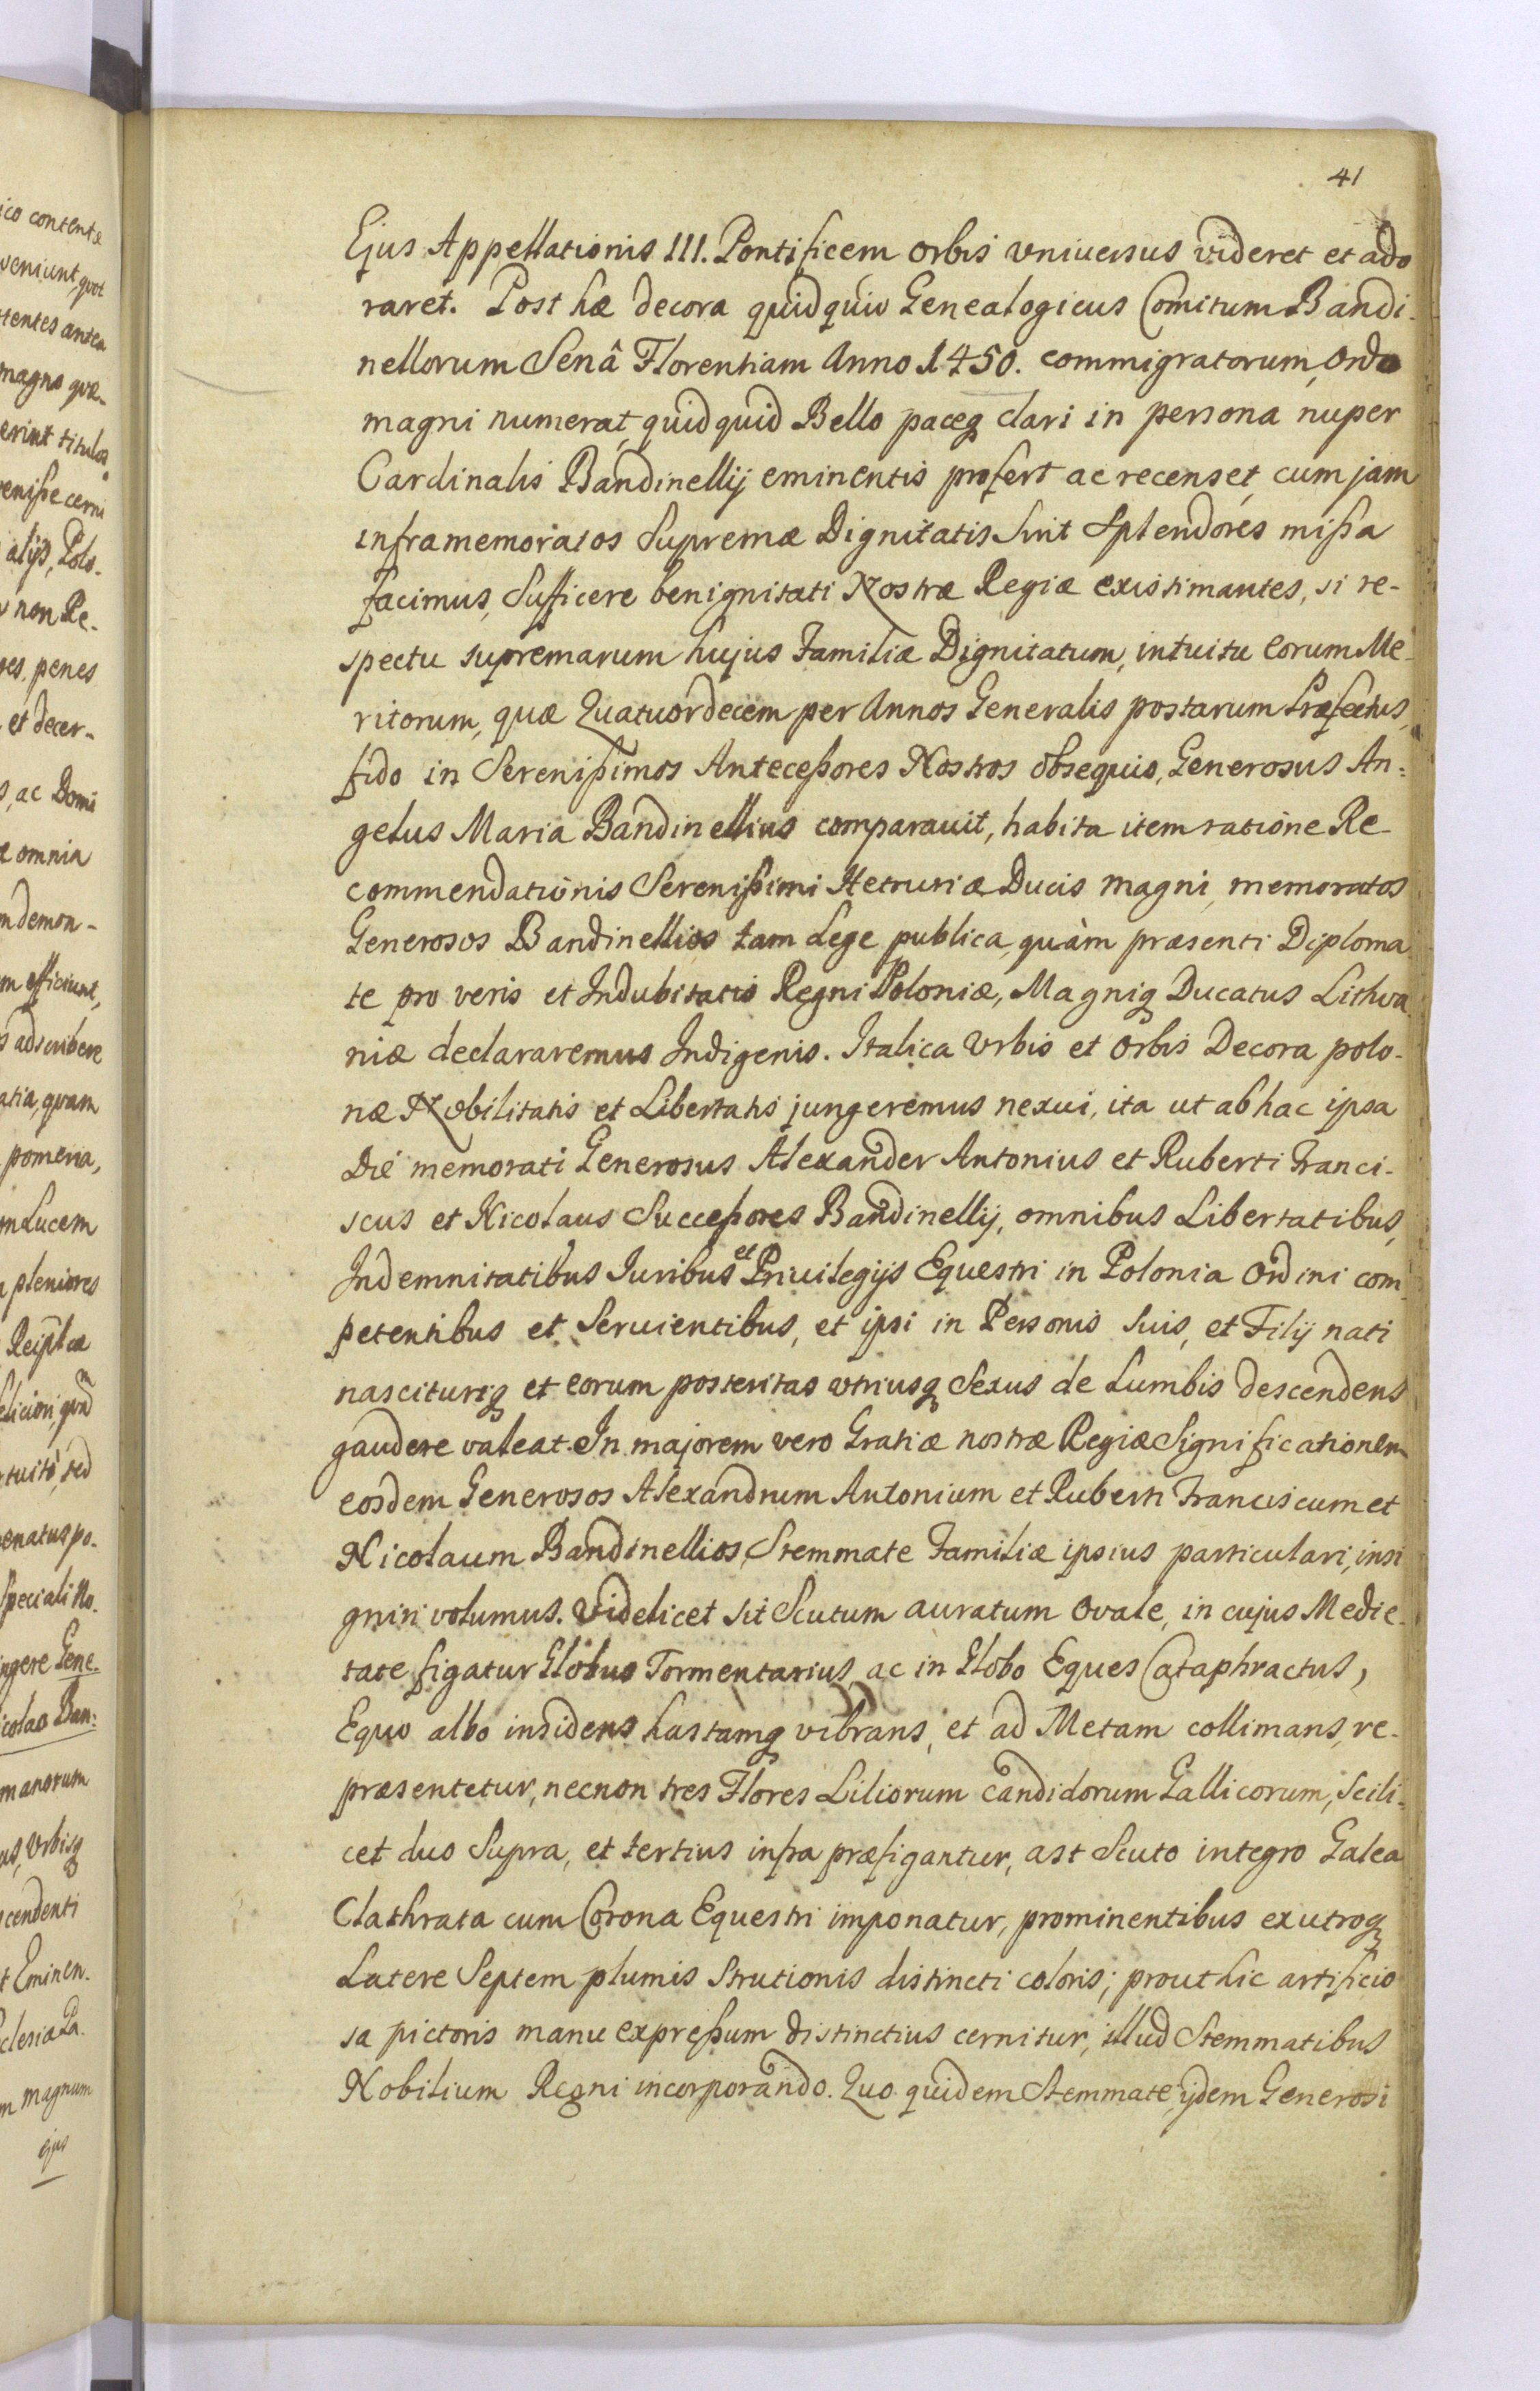 41
Ejus Appellationis III. Pontificem Orbis vniuersus videret et ado
raret. Post hæ decora quidquid Genealogicus Comitum Bandi-
nellorum Senâ Florentiam Anno 1450. commigratorum, Ordo
magni numerat, quidquid Bello paceq clari in persona nuper
Cardinalis Bandinellij eminentis profert ac recenset, cum jam
inframemoratos Supremæ Dignitatis sint Splendores missa
facimus, Sufficere benignitati Nostræ Regiæ existimantes, si re-
spectu supremarum hujus Familiæ Dignitatum, intuitu eorum Me-
ritorum, quæ Quatuordecem per Annos Generalis postarum Præfectus,
fido in Serenissimos Antecessores Nostros obsequio, Generosus An-
gelus Maria Bandinellius comparauit, habita item ratione Re-
commendationis Serenissimi Hetruriæ Ducis magni, memoratos
Generosos Bandinellios tam Lege publica, quàm præsenti Diploma
te pro veris et Indubitatis Regni Poloniæ, Magniq Ducatus Lithva
niæ declararemus Indigenis. Italica Vrbis et Orbis Decora polo-
næ Nobilitatis et Libertatis jungeremus nexui, ita ut ab hac ipsa
Die memorati Generosus Alexander Antonius et Ruberti Franci-
scus et Nicolaus Successores Bandinellij, omnibus Libertatibus,
Indemnitatibus Iuribus et Priuilegijs Equestri in Polonia Ordini com
petentibus et Seruientibus, et ipsi in Personis suis, et Filij nati
nascituriq et eorum posteritas vtriusq Sexus de Lumbis descendens
gaudere valeat. In majorem vero Gratiæ nostræ Regiæ Significationem
eosdem Generosos Alexandrum Antonium et Ruberti Franciscum et
Nicolaum Bandinellios, Stemmate Familiæ ipsius particulari, insi
gniri volumus. Videlicet sit Scutum auratum Ovale, in cujus Medie-
tate figatur Globus Tormentarius, ac in Globo Eques Cataphractus,
Equo albo insidens hastamq vibrans, et ad Metam collimans, re-
præsentetur, necnon tres Flores Liliorum candidorum Gallicorum, Scili-
cet duo Supra, et tertius infra præfigantur, ast Scuto integro Galea
Clathrata cum Corona Equestri imponatur, prominentibus ex utroq
Latere Septem plumis Strutionis distincti coloris; prout hic artificio
sa pictoris manu expressum distinctius cernitur, illud Stemmatibus
Nobilium Regni incorporando. Quo quidem Stemmate, ijdem Generosi